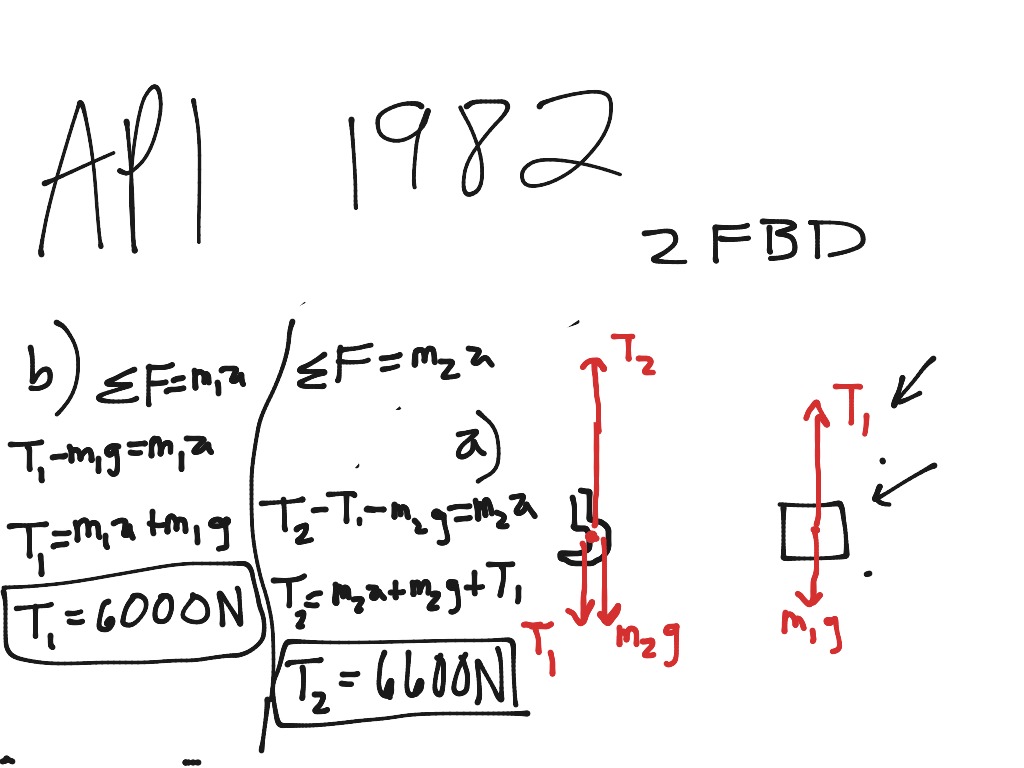 AP1 1982
2 FBD
b) ΣF=m₁a
T₁-m₁g=m₁a
T₁=m₁a+m₁g
T₁=6000N
ΣF=m₂a
a)
T₂-T₁-m₂g=m₂a
T₂=m₂a+m₂g+T₁
T₂=6600N
T₂
T₁
m₂g
T₁
m₁g